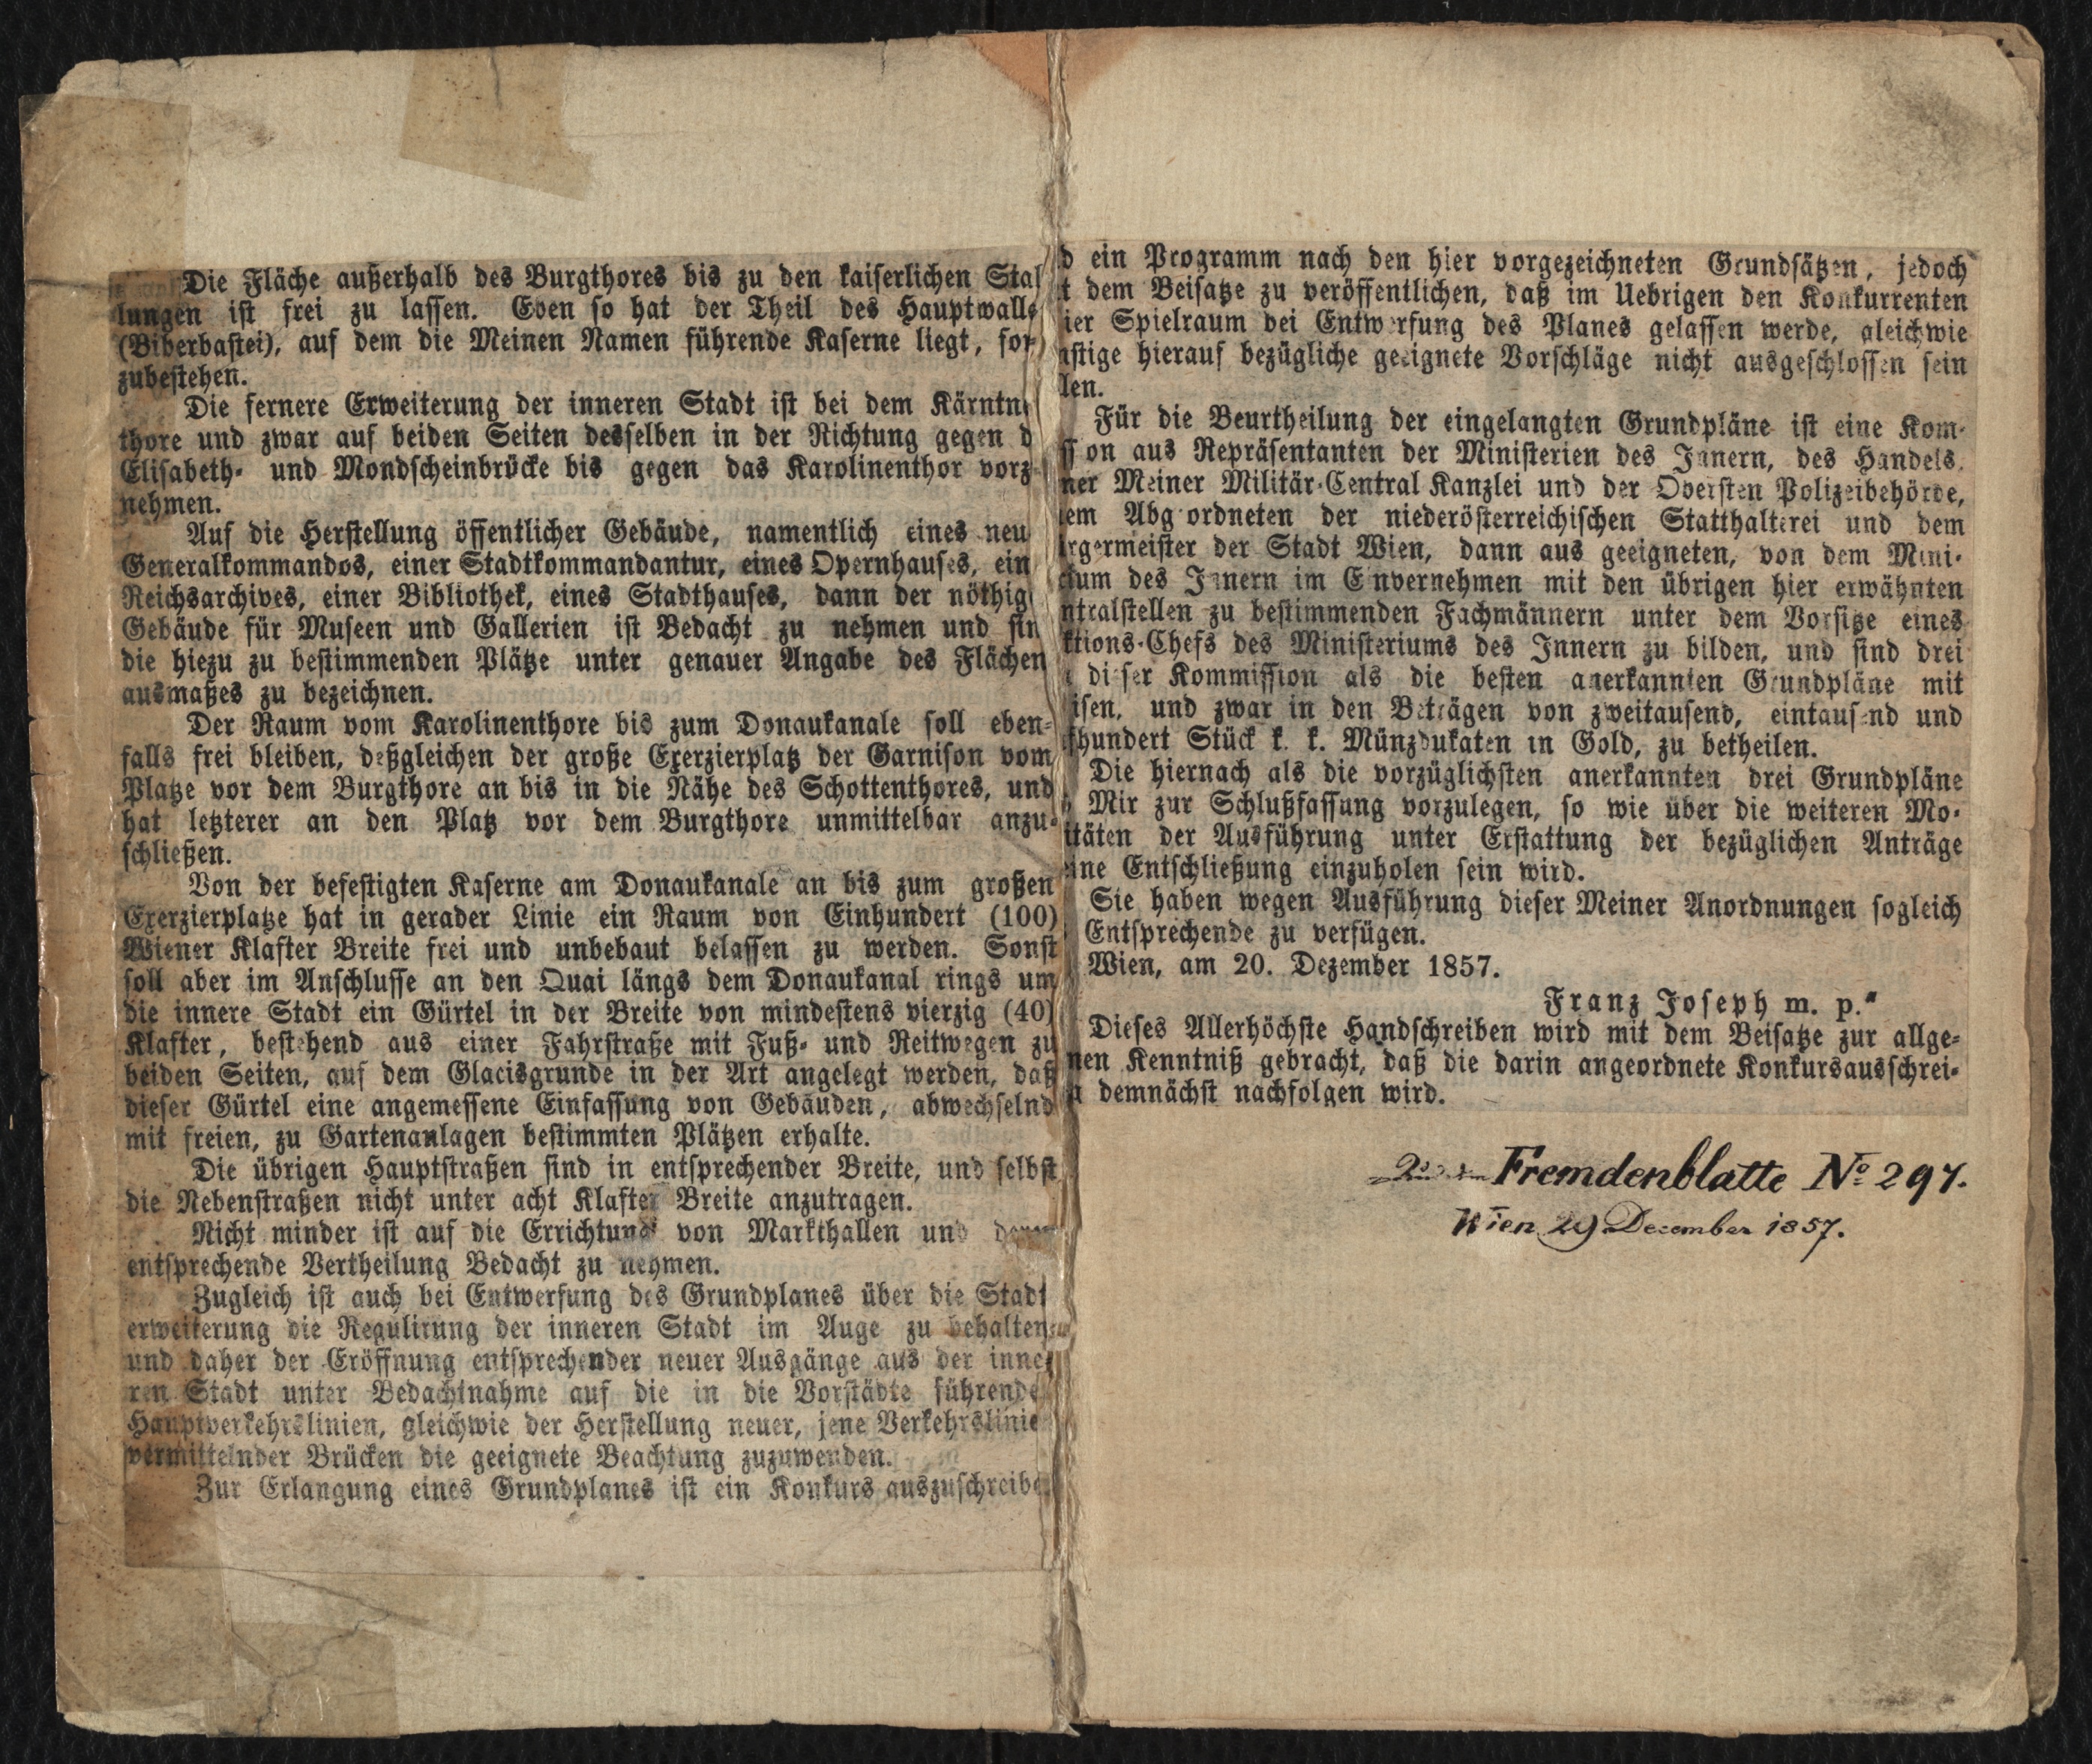 Die Fläche außerhalb des Burgthores bis zu den kaiserlichen Stal
lungen ist frei zu lassen. Eben so hat der Theil des Hauptwalls
(Biberbastei), auf dem die Meinen Namen führende Kaserne liegt, for
zubestehen.
Die fernere Erweiterung der inneren Stadt ist bei dem Kärntn
thore und zwar auf beiden Seiten desselben in der Richtung gegen d
Elisabeth- und Mondscheinbrücke bis gegen das Karolinenthor vorz
nehmen.
Auf die Herstellung öffentlicher Gebäude, namentlich eines neu
Generalkommandos, einer Stadtkommandantur, eines Opernhauses, ein
Reichsarchives, einer Bibliothek, eines Stadthauses, dann der nöthig
Gebäude für Museen und Gallerien ist Bedacht zu nehmen und sin
die hiezu zu bestimmenden Plätze unter genauer Angabe des Flächen
ausmaßes zu bezeichnen.
Der Raum vom Karolinenthore bis zum Donaukanale soll eben-
falls frei bleiben, deßgleichen der große Exerzierplatz der Garnison vom
Platze vor dem Burgthore an bis in die Nähe des Schottenthores, und
hat letzterer an den Platz vor dem Burgthore unmittelbar anzu-
schließen.
Von der befestigten Kaserne am Donaukanale an bis zum großen
Exerzierplatze hat in gerader Linie ein Raum von Einhundert (100)
Wiener Klafter Breite frei und unbebaut belassen zu werden. Sonst
soll aber im Anschlusse an den Quai längs dem Donaukanal rings um
die innere Stadt ein Gürtel in der Breite von mindestens vierzig (40)
Klafter, bestehend aus einer Fahrstraße mit Fuß- und Reitwegen zu
beiden Seiten, auf dem Glacisgrunde in der Art angelegt werden, daß
dieser Gürtel eine angemessene Einfassung von Gebäuden, abwechselnd
mit freien, zu Gartenanlagen bestimmten Plätzen erhalte.
Die übrigen Hauptstraßen sind in entsprechender Breite, und selbst
die Nebenstraßen nicht unter acht Klafter Breite anzutragen.
Nicht minder ist auf die Errichtung von Markthallen und
entsprechende Vertheilung Bedacht zu nehmen.
Zugleich ist auch bei Entwerfung des Grundplanes über die Stadt
erweiterung die Regulirung der inneren Stadt im Auge zu behalten
und daher der Eröffnung entsprechender neuer Ausgänge aus der inne
ren Stadt unter Bedachtnahme auf die in die Vorstädte führende
Hauptverkehrslinien, gleichwie der Herstellung neuer, jene Verkehrslinie
vermittelnder Brücken die geeignete Beachtung zuzuwenden.
Zur Erlangung eines Grundplanes ist ein Konkurs auszuschreibe
d ein Programm nach den hier vorgezeichneten Grundsätzen, jedoch
t dem Beisatze zu veröffentlichen, daß im Uebrigen den Konkurrenten
ier Spielraum bei Entwerfung des Planes gelassen werde, gleichwie
nstige hierauf bezügliche geeignete Vorschläge nicht ausgeschlossen sein
len.
Für die Beurtheilung der eingelangten Grundpläne ist eine Kom-
ss on aus Repräsentanten der Ministerien des Innern, des Handels,
ner Meiner Militär-Central Kanzlei und der Obersten Polizeibehörde,
em Abgeordneten der niederösterreichischen Statthalterei und dem
rgermeister der Stadt Wien, dann aus geeigneten, von dem Mini-
rium des Innern im Einvernehmen mit den übrigen hier erwähnten
ntralstellen zu bestimmenden Fachmännern unter dem Vorsitze eines
ktions-Chefs des Ministeriums des Innern zu bilden, und sind drei
dieser Kommission als die besten anerkannten Grundpläne mit
isen, und zwar in den Beträgen von zweitausend, eintausend und
fhundert Stück k. k. Münzdukaten in Gold, zu betheilen.
Die hiernach als die vorzüglichsten anerkannten drei Grundpläne
Mir zur Schlußfassung vorzulegen, so wie über die weiteren Mo-
itäten der Ausführung unter Erstattung der bezüglichen Anträge
ine Entschließung einzuholen sein wird.
Sie haben wegen Ausführung dieser Meiner Anordnungen sogleich
Entsprechende zu verfügen.
Wien, am 20. Dezember 1857.
Franz Joseph m. p."
Dieses Allerhöchste Handschreiben wird mit dem Beisatze zur allge-
nen Kenntniß gebracht, daß die darin angeordnete Konkursausschrei-
demnächst nachfolgen wird.
Fremdenblatte No 297.
Wien 29 December 1857.